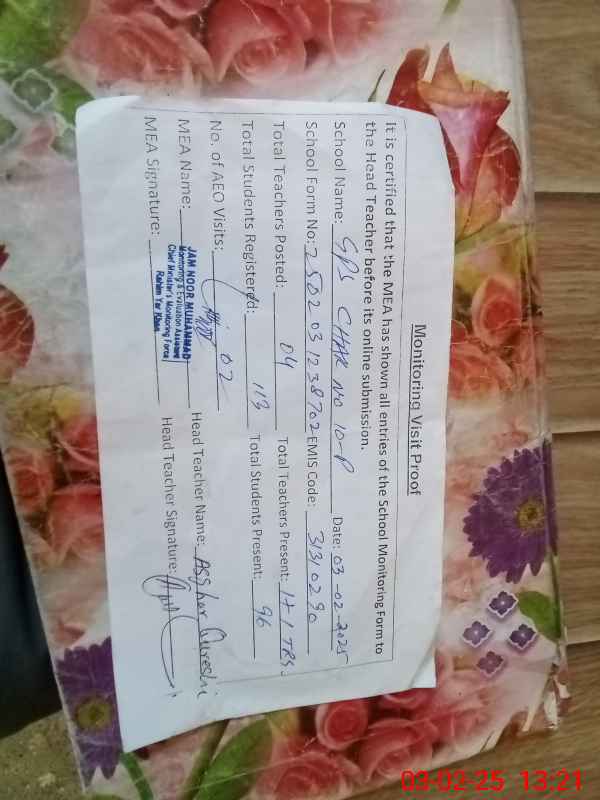 Monitoring Visit Proof
It is certified that the MEA has shown all entries of the School Monitoring Form to
the Head Teacher before its online submission.
School Name: GPS CHAK NO 10-P Date: 03-02-2025
School Form No: 2502031238702 EMIS Code: 31310290
Total Teachers Posted: 04 Total Teachers Present: 1+1 TRS.
Total Students Registered: 113 Total Students Present: 96
No. of AEO Visits: 02
MEA Name: JAM NOOR MUHAMMAD Head Teacher Name: Asghar Qureshi
Monitoring & Evaluation Assistant
Chief Minister's Monitoring Force
Rahim Yar Khan
MEA Signature: Head Teacher Signature:
03-02-25 13:21